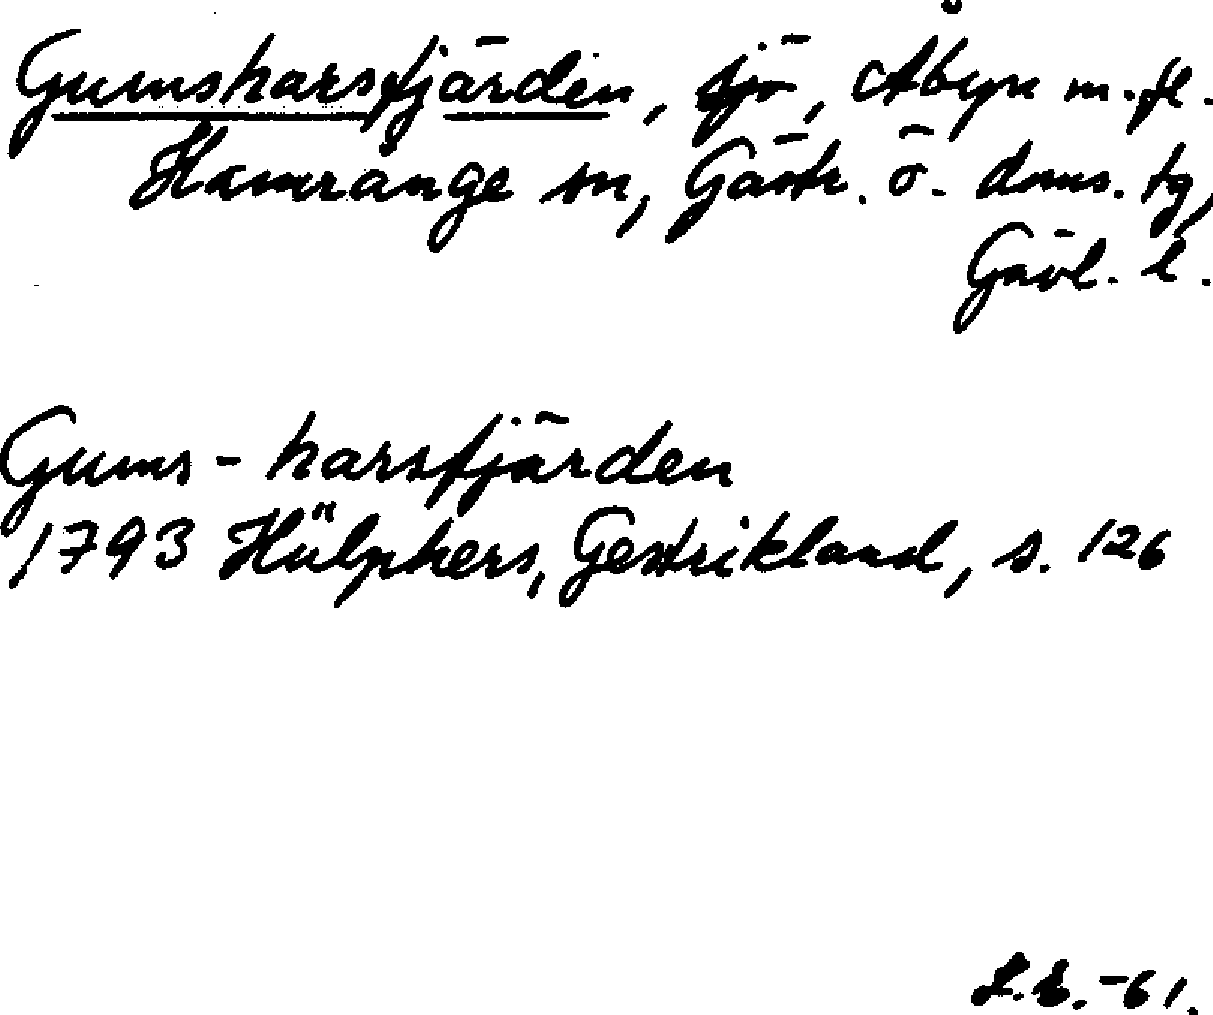 Gumsharsfjärden, sjö, Åbyn m.fl.
Hamrånge sn, Gästr. ö. doms. tg,
Gävl. l.
Gums-harsfjärden
1793 Hülphers, Gestrikland, s. 126
L.E.-61.